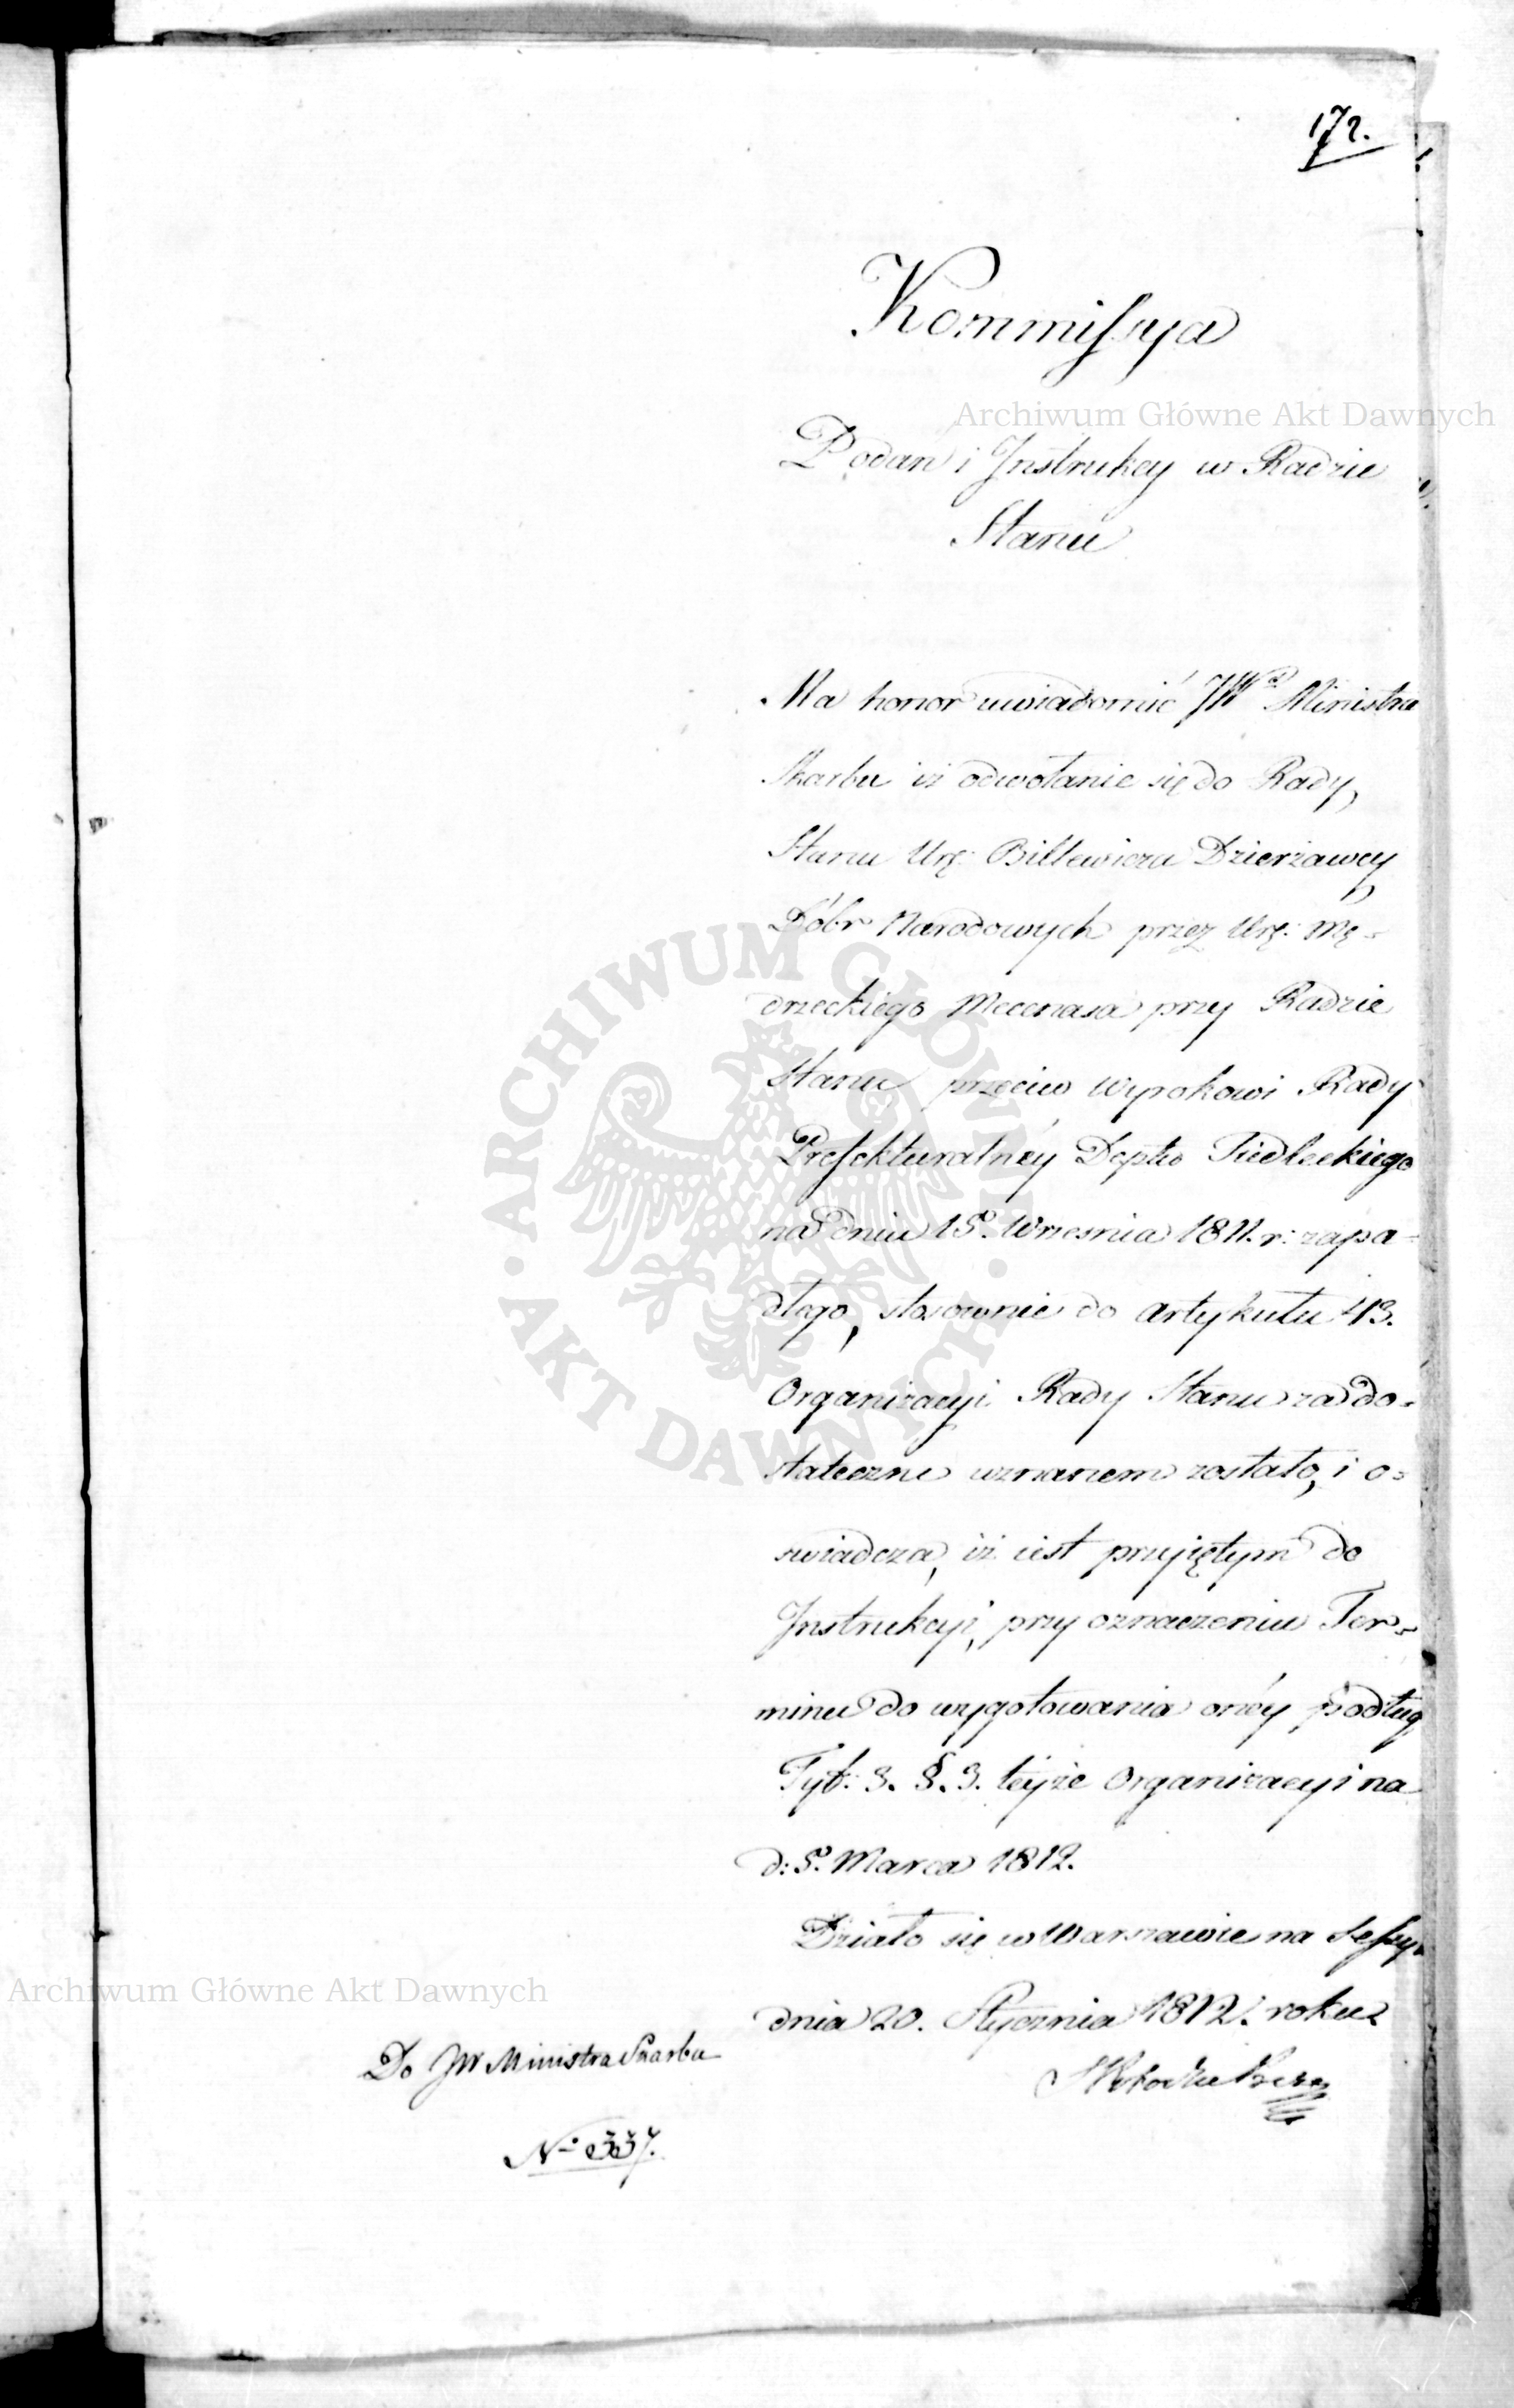 172.
Kommissya
Archiwum Główne Akt Dawnych
Podań i Instrukcy w Radzie
Stanu
Ma honor uwiadomić JW Ministra
Skarbu iż odwołanie się do Rady
Stanu Urę: Billewicza Dzierżawcy
Dóbr Narodowych przez Urę: Mę-
drzeckiego Mecenasa przy Radzie
Stanu, przeciw Wyrokowi Rady
Prefekturalnéy Deptu Siedleckiego
na dniu 15º. Wrzesnia 1811. r: zapa-
dłego, stosownie do Artykułu 43.
Organizacyi Rady Stanu za do-
stateczne uznanem zostało, i o-
swiadcza, iż iest przyiętym do
Instrukcyi, przy oznaczeniu Ter-
minu do wygotowania onéy podług
Tyt: 3. §. 3. téyże Organizacyi na
d: 5º. Marca 1812.
Działo się w Warszawie na Sessyi
dnia 20. Stycznia 1812. roku
Archiwum Główne Akt Dawnych
Do JW Ministra Skarbu
Nº 337.
ARCHIWUM GŁÓWNE · AKT DAWNYCH ·